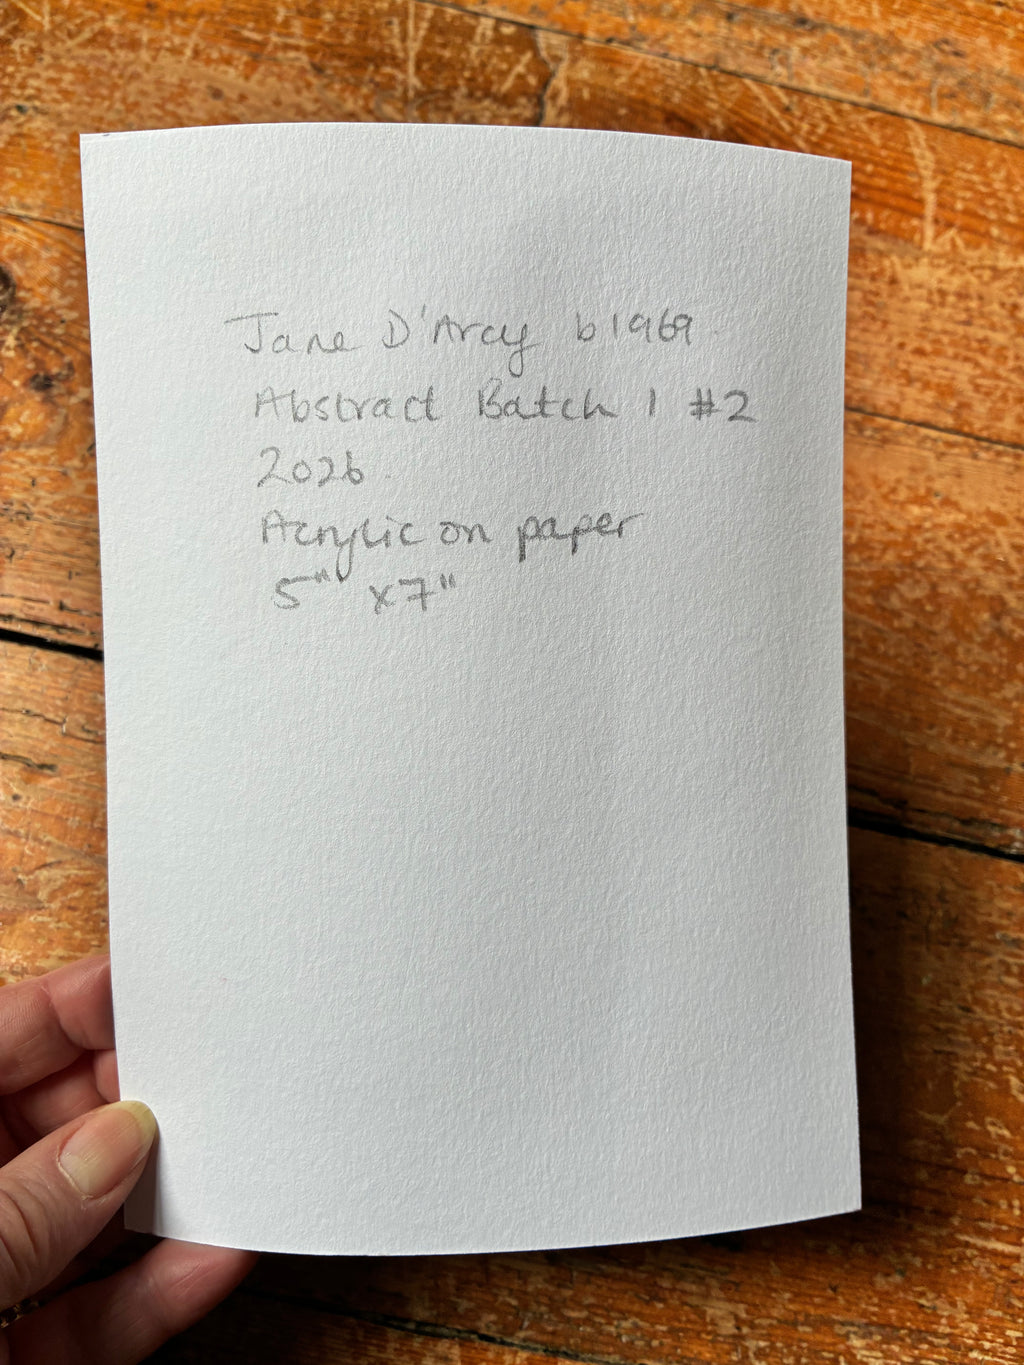 Jane D'Arcy b1969.
Abstract Batch 1 #2
2026.
Acrylic on paper
5" x7"